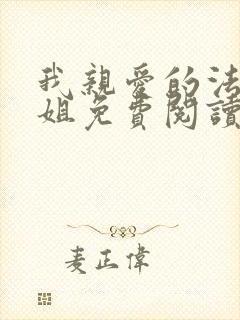 我親愛的法
姐免費閱讀
麦正偉